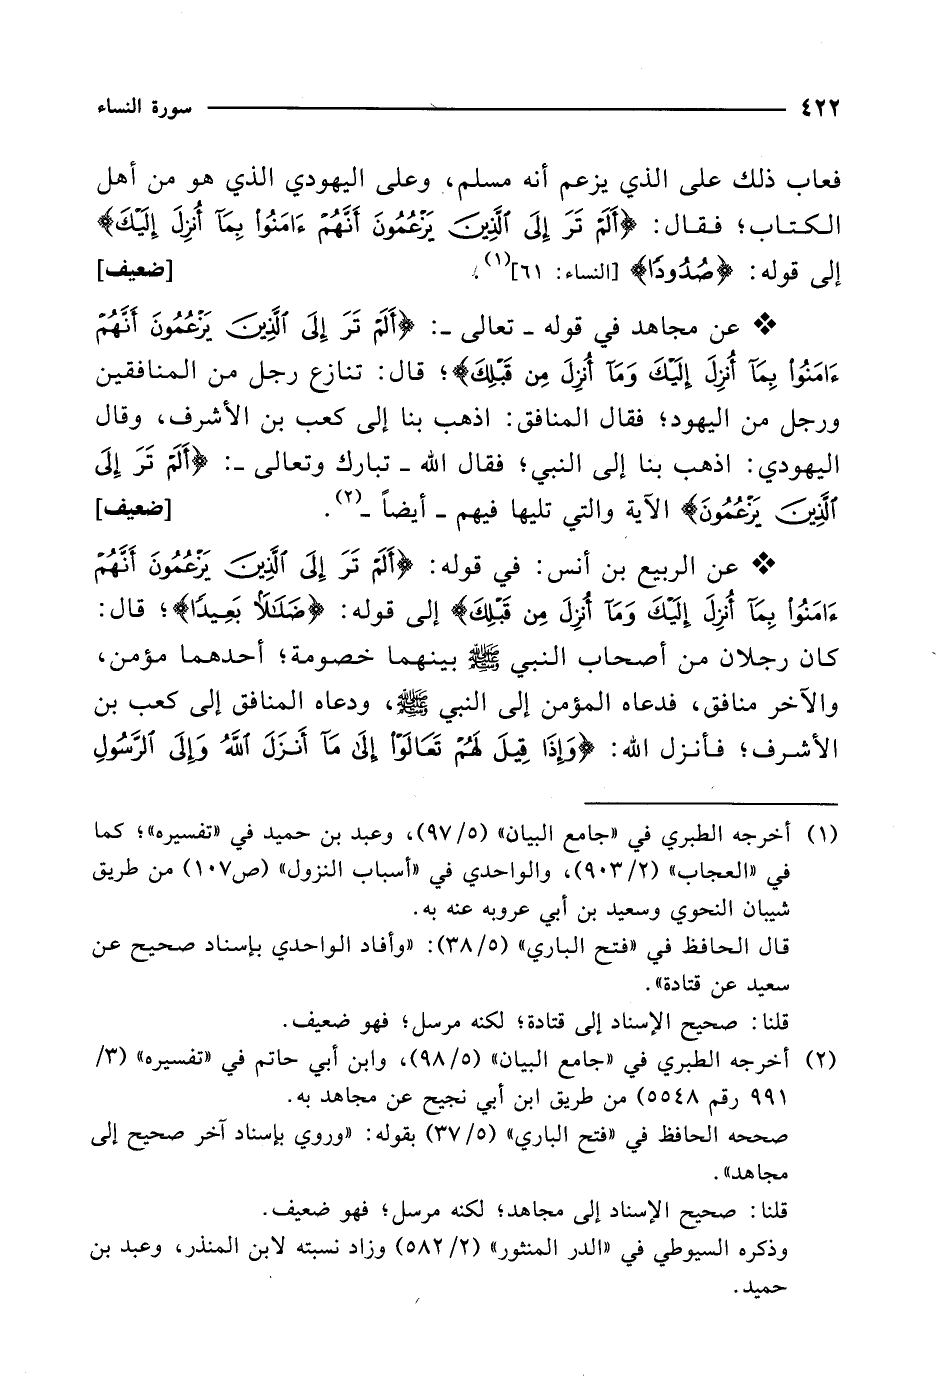 ٤٢٢ سورة النساء
فعاب ذلك على الذي يزعم أنه مسلم، وعلى اليهودي الذي هو من أهل
الكتاب؛ فقال: ﴿أَلَمْ تَرَ إِلَى ٱلَّذِينَ يَزْعُمُونَ أَنَّهُمْ ءَامَنُوا۟ بِمَآ أُنزِلَ إِلَيْكَ﴾
إلى قوله: ﴿صُدُودًا﴾ [النساء: ٦١](١). [ضعيف]
❖ عن مجاهد في قوله ـ تعالى ـ: ﴿أَلَمْ تَرَ إِلَى ٱلَّذِينَ يَزْعُمُونَ أَنَّهُمْ
ءَامَنُوا۟ بِمَآ أُنزِلَ إِلَيْكَ وَمَآ أُنزِلَ مِن قَبْلِكَ﴾؛ قال: تنازع رجل من المنافقين
ورجل من اليهود؛ فقال المنافق: اذهب بنا إلى كعب بن الأشرف، وقال
اليهودي: اذهب بنا إلى النبي؛ فقال الله ـ تبارك وتعالى ـ: ﴿أَلَمْ تَرَ إِلَى
ٱلَّذِينَ يَزْعُمُونَ﴾ الآية والتي تليها فيهم ـ أيضاً ـ(٢). [ضعيف]
❖ عن الربيع بن أنس: في قوله: ﴿أَلَمْ تَرَ إِلَى ٱلَّذِينَ يَزْعُمُونَ أَنَّهُمْ
ءَامَنُوا۟ بِمَآ أُنزِلَ إِلَيْكَ وَمَآ أُنزِلَ مِن قَبْلِكَ﴾ إلى قوله: ﴿ضَلَٰلًۢا بَعِيدًا﴾؛ قال:
كان رجلان من أصحاب النبي ﷺ بينهما خصومة؛ أحدهما مؤمن،
والآخر منافق، فدعاه المؤمن إلى النبي ﷺ، ودعاه المنافق إلى كعب بن
الأشرف؛ فأنزل الله: ﴿وَإِذَا قِيلَ لَهُمْ تَعَالَوْا۟ إِلَىٰ مَآ أَنزَلَ ٱللَّهُ وَإِلَى ٱلرَّسُولِ
(١) أخرجه الطبري في «جامع البيان» (٥/ ٩٧)، وعبد بن حميد في «تفسيره»؛ كما
في «العجاب» (٢/ ٩٠٣)، والواحدي في «أسباب النزول» (ص١٠٧) من طريق
شيبان النحوي وسعيد بن أبي عروبه عنه به.
قال الحافظ في «فتح الباري» (٥/ ٣٨): «وأفاد الواحدي بإسناد صحيح عن
سعيد عن قتادة».
قلنا: صحيح الإسناد إلى قتادة؛ لكنه مرسل؛ فهو ضعيف.
(٢) أخرجه الطبري في «جامع البيان» (٥/ ٩٨)، وابن أبي حاتم في «تفسيره» (٣/
٩٩١ رقم ٥٥٤٨) من طريق ابن أبي نجيح عن مجاهد به.
صححه الحافظ في «فتح الباري» (٥/ ٣٧) بقوله: «وروي بإسناد آخر صحيح إلى
مجاهد».
قلنا: صحيح الإسناد إلى مجاهد؛ لكنه مرسل؛ فهو ضعيف.
وذكره السيوطي في «الدر المنثور» (٢/ ٥٨٢) وزاد نسبته لابن المنذر، وعبد بن
حميد.